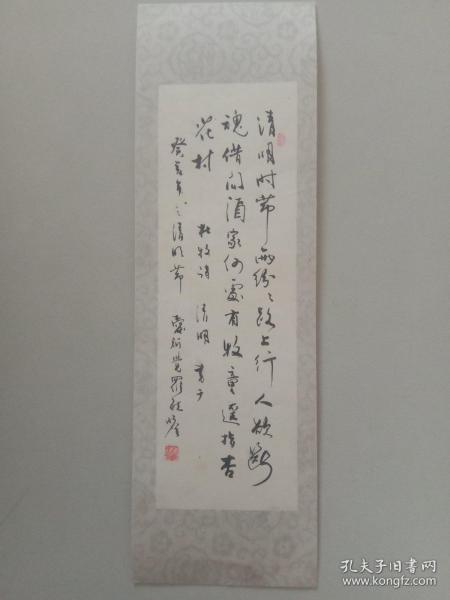 清明时节雨纷々路上行人欲断
魂借问酒家何处有牧童遥指杏
花村 杜牧诗 清明 书于
癸亥年之清明节 爱新觉罗
孔夫子旧书网
www.kongfz.com